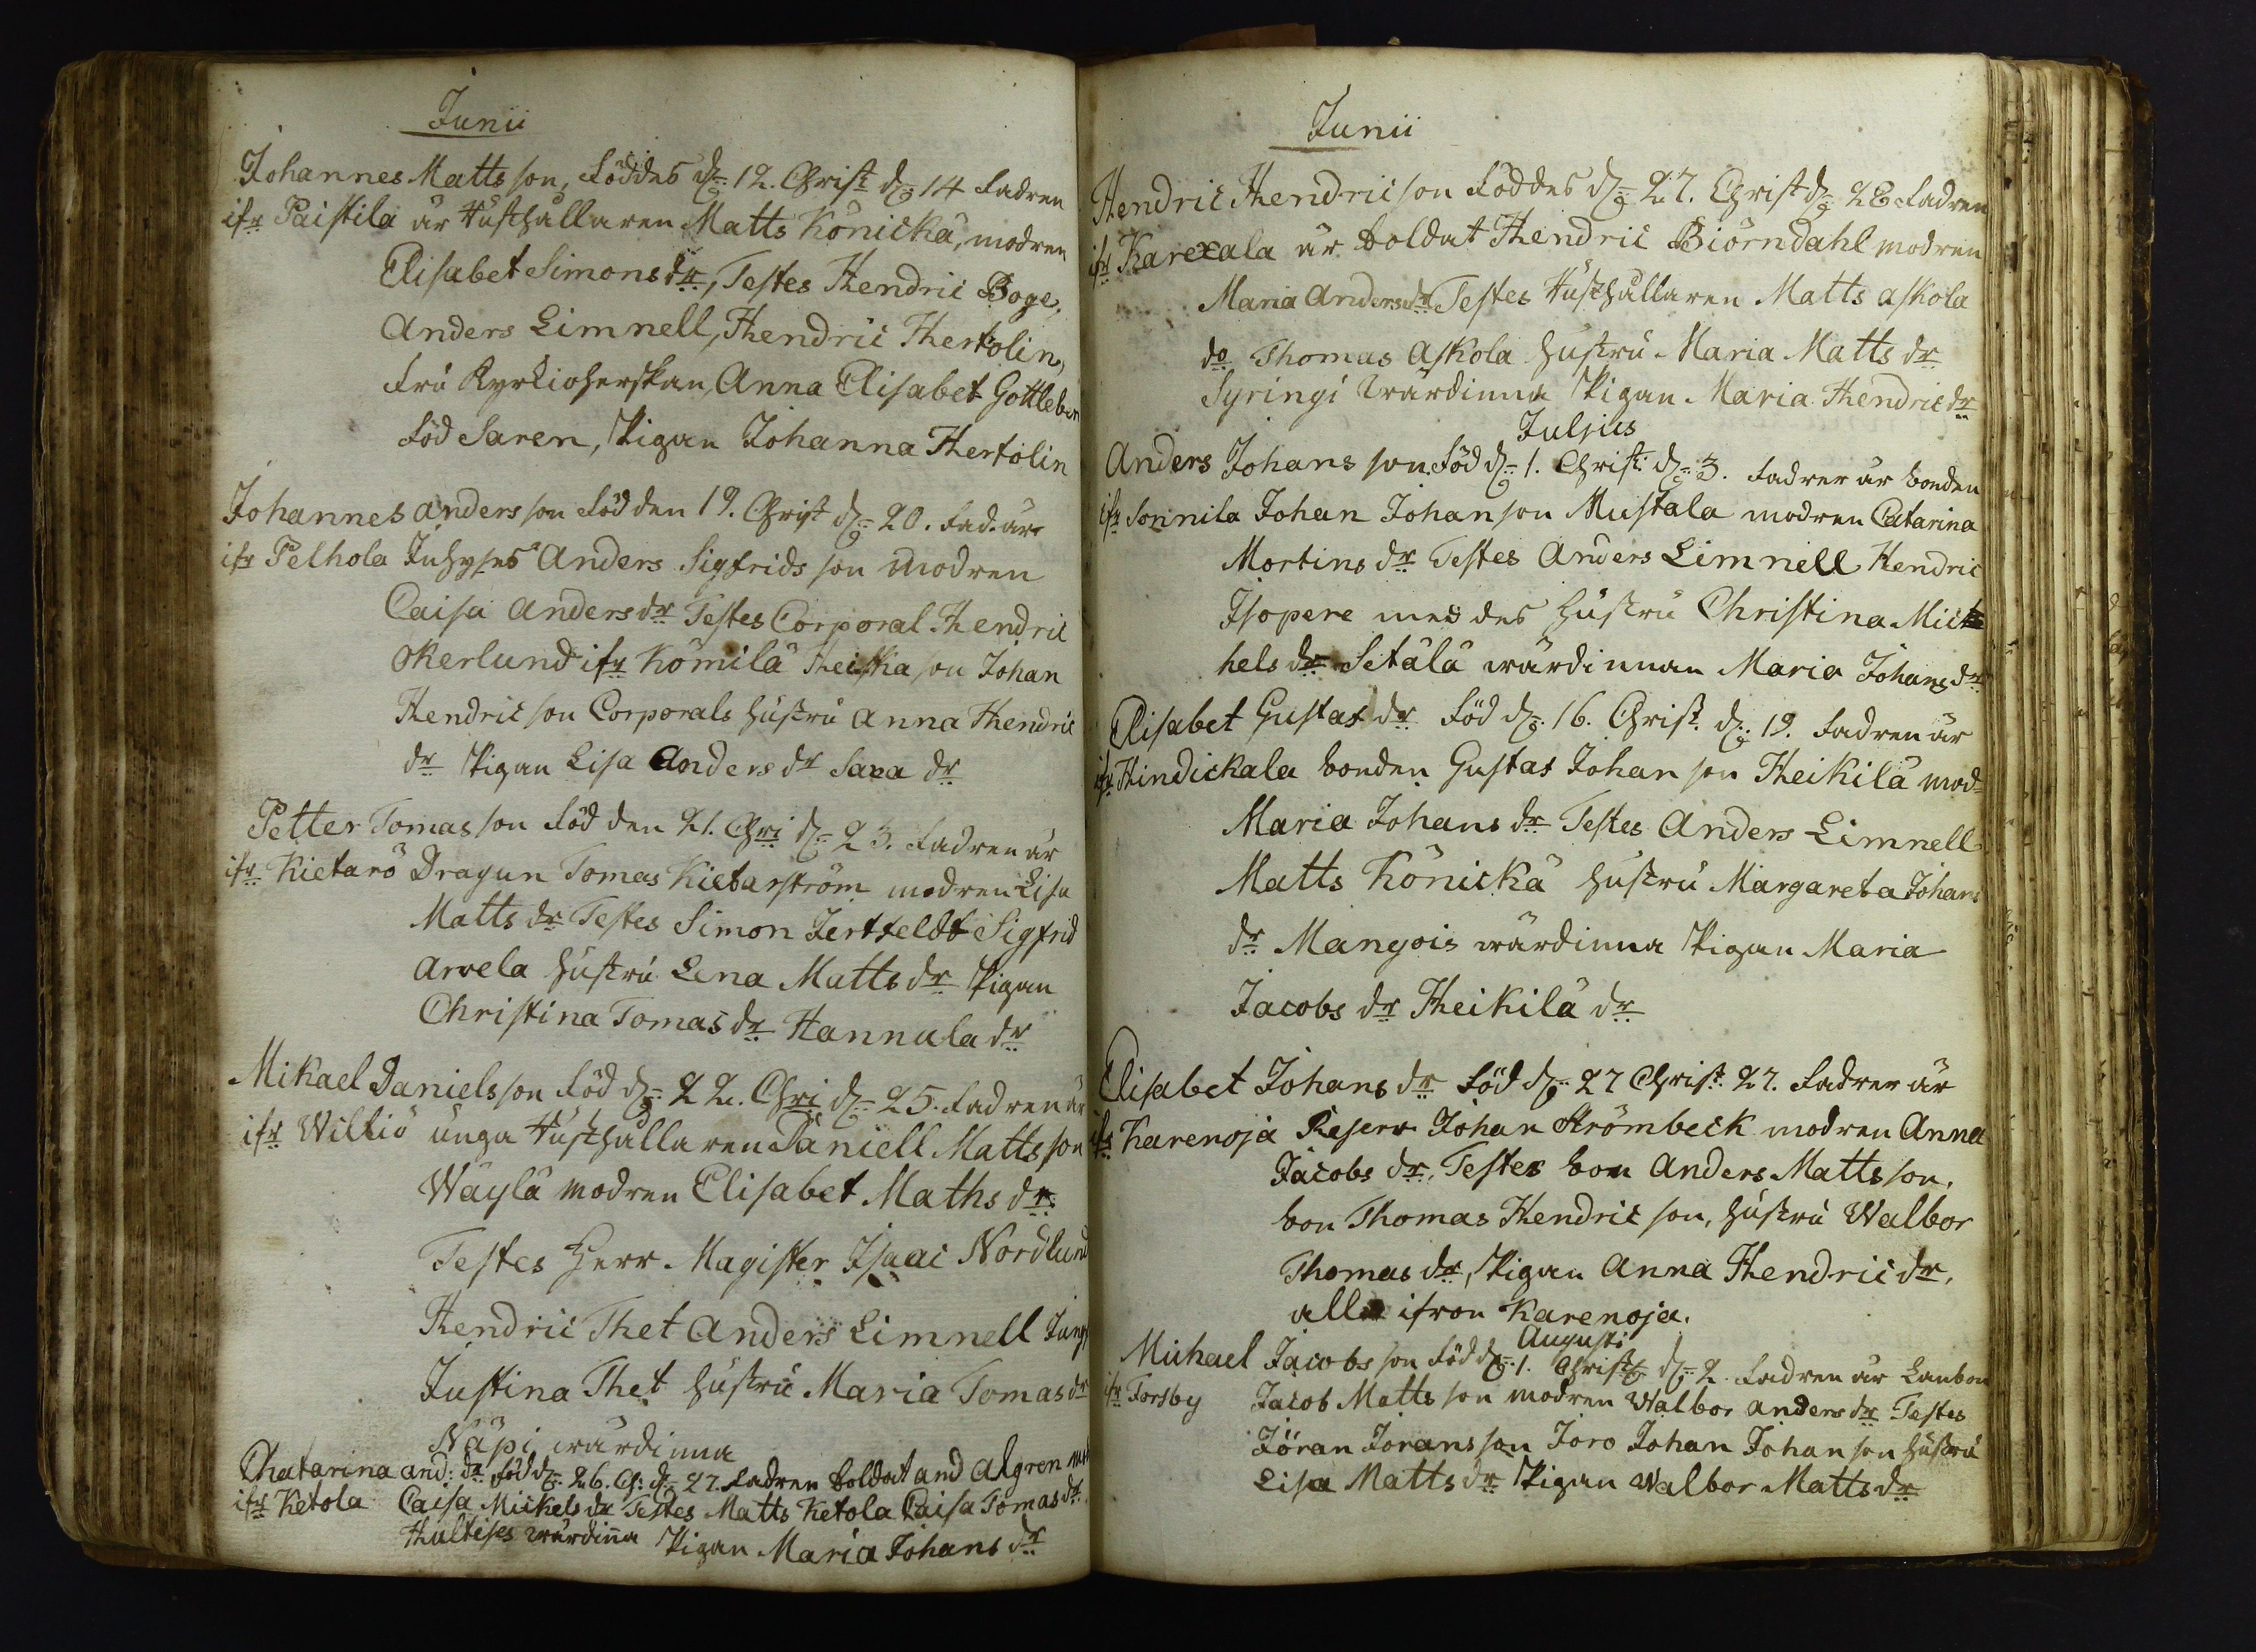 Junii
Johannes Matts son, föddes d: 12. Christ d: 14 fadren
ifr Paistila är Rusthållaren Matts Könickä, modren
Elisabet Simons dr, Testes Hendric Boge,
Anders Limnell, Hendric Hertolin,
fru Kyrkioherskan, Anna Elisabet Gottleben
föd Saren, Pigan Johanna Hertolin
Johannes anders son född den 19. Christ d: 20. fad. är
ifr Pelhola Inhyses Anders Sigfrids son modren
Caisa anders dr Testes Corporal Hendric
okerlund ifr Kömilä Heiskia son Johan
Hendric son Corporals hustru anna Hendric
dr Pigan Lisa Anders dr Saxa dr
Petter Tomas son född den 21. Chri d: 23. fadren är
ifr Kietarö Dragun Tomas Kietarström modren Lisa
Matts dr Testes Simon Jertfeldt Sigfrid
arvela hustru Lena Matts dr Pigan
Christina Tomas dr Hannula dr
Mikael Daniels son född d: 22. Chri d: 25. fadren är
ifr Williö unga Rusthållaren Daniell Matts son
Wäylä modren Elisabet Maths dr.
Testes Herr Magister Isaac Nordlund
Hendric Thet Anders Limnell Jungf
Justina Thet hustru Maria Tomas dr
Näpi wärdinna
Chatarina and: dr född d: 26. Ch: d: 27. fadren Soldat and Algren
ifr Ketola Caisa Mickels dr Testes Matts Ketola Caisa Tomas dr
Hultises wärdinna Pigan Maria Johans dr
Junii
Hendric Hendric son föddes d: 27. Christ d: 28 fadren
ifr Karexala är Soldat Hendric Biörndahl modren
Maria Anders dr Testes Rusthållaren Matts askola
do Thomas Askola hustru Maria Matts dr
Syringi wärdinna Pigan Maria Hendric dr
Juljus
Anders Johans son. född d: 1. Christ: d: 3. fadren är bonden
ifr Sonnila Johan Johan son Mustala modren Catarina
Mortins dr Testes Anders Limnell Hendric
Isopere med des hustru Christina Mic
hels dr Setälä wärdinnan Maria Johans dr
Elisabet Gustaf dr född d: 16. Christ. d: 19. fadren är
ifr Hindickala bonden Gustaf Johan son Heikilä mod
Maria Johans dr Testes Anders Limnell
Matts Könickä hustru Margareta Johans
dr Mangois wärdinna Pigan Maria
Jacobs dr Heikilä dr
Elisabet Johans dr född d: 27 Christ. 27. fadren är
ifr Karenoja Reserv Johan Strömbeck modren Anna
Jacobs dr, Testes bon Anders Matts son.
bon Thomas Hendric son, hustru Walbor
Thomas dr, Pigan Anna Hendric dr,
alla ifron Karenoja.
Augusti
Michael Jacobs son född d: 1. Christ d: 2. fadren är Lanbon
ifr Forsby Jacob Matts son modren Walbor anders dr Testes
Jöran Jörans son Joro Johan Johan son hustru
Lisa Matts dr Pigan Walbor Matts dr